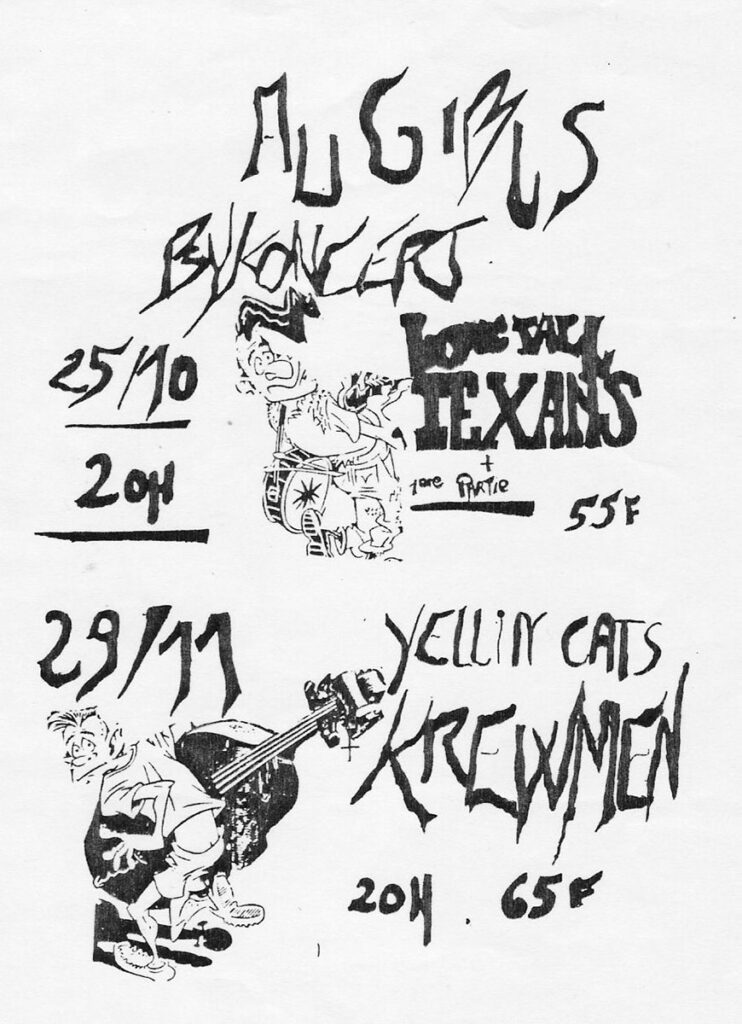 AU GIBUS
BY KONCERT
25/10
20H
LONE TALL
TEXANS
+
1ere PARTIE
55F
29/11
YELLIN CATS
+
KREWMEN
20H . 65F